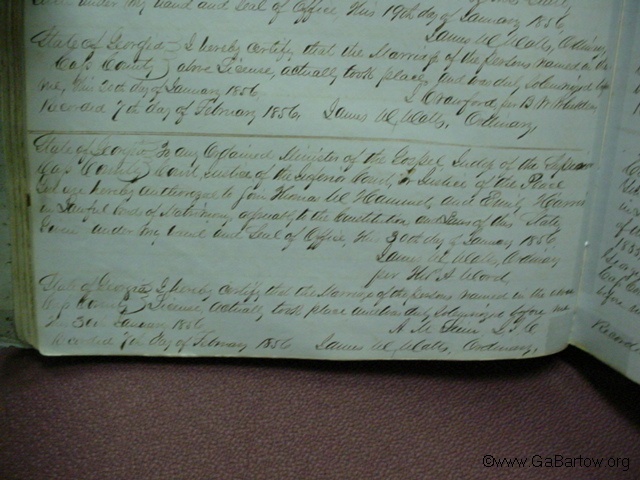 under my hand and Seal of Office, this 19th day of January 1856
James W. Watts, Ordinary
State of Georgia } I hereby certify that the Marriage of the persons named in the
Cass County } above License, actually took place, and was duly Solemnized before
me, this 20th day of January 1856, J. Crawford, for B. W.
Recorded 7th day of February 1856, James W. Watts, Ordinary
State of Georgia } To any Ordained Minister of the Gospel, Judge of the Superior
Cass County } Court, Justice of the Inferior Court, or Justice of the Peace
You are hereby authorized to Join Thomas W. Hammel, and Emily Harris
in Lawful bond of Matrimony, agreeably to the Constitution and Laws of this State
Given under my hand and Seal of Office, this 30th day of January 1856,
James W. Watts, Ordinary
per A. Word,
State of Georgia } I hereby certify that the Marriage of the persons named in the above
Cass County } License, actually took place and was duly Solemnized before me
this 30th January 1856
Recorded 7th day of February 1856 James W. Watts, Ordinary,
©www.GaBartow.org